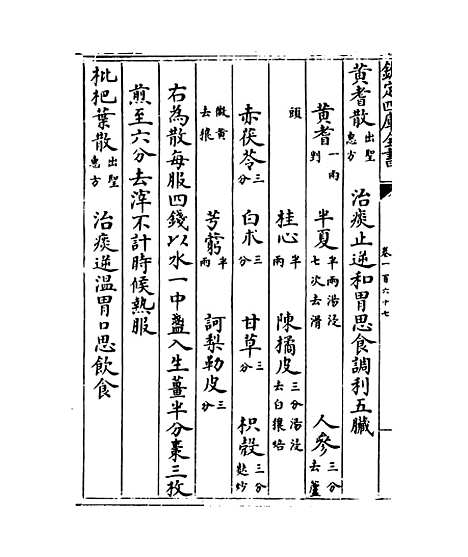 欽定四庫全書
卷一百六十七
黄耆散出聖惠方 治痰止逆和胃思食調利五臟
黄耆一兩剉 半夏半兩湯浸七次去滑 人參三分去蘆
頭 桂心半兩 陳橘皮三分湯浸去白瓤焙
赤茯苓三分 白术三分 甘草三分 枳殼三分麩炒
微黄去瓤 芎藭半兩 訶梨勒皮三分
右為散每服四錢以水一中盞入生薑半分棗三枚
煎至六分去滓不計時候熱服
枇杷葉散出聖惠方 治痰逆溫胃口思飲食